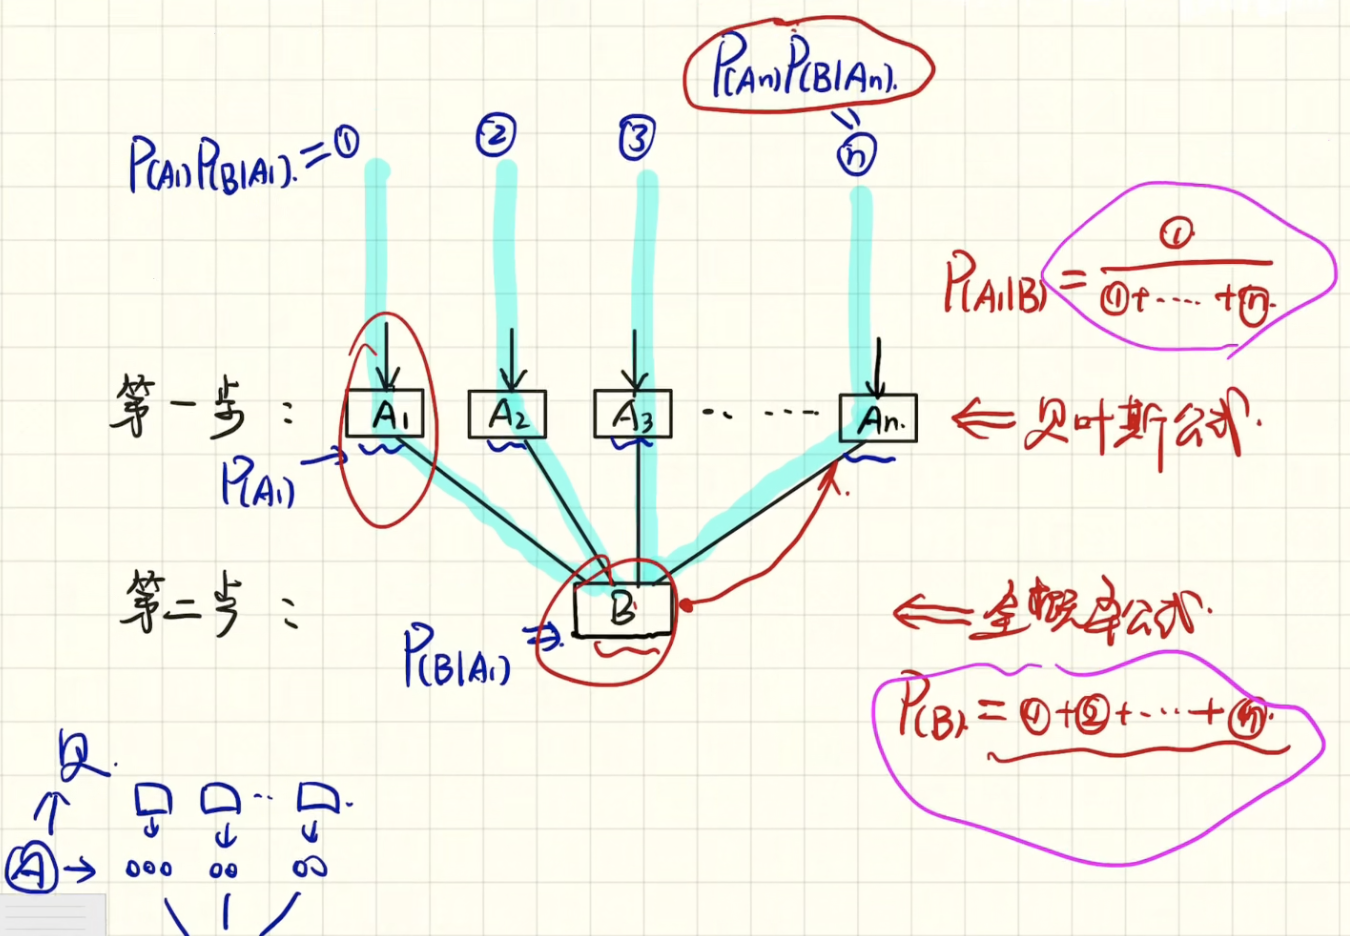 P(An)P(B|An).
P(A1)P(B|A1). = ① ② ③ ⓝ
P(A1|B) = ① / (①+····+ⓝ)
第一步： A1 A2 A3 ······ An. ⇐ 贝叶斯公式.
P(A1)
第二步： B ⇐ 全概率公式.
P(B|A1)
P(B) = ①+②+···+ⓝ.